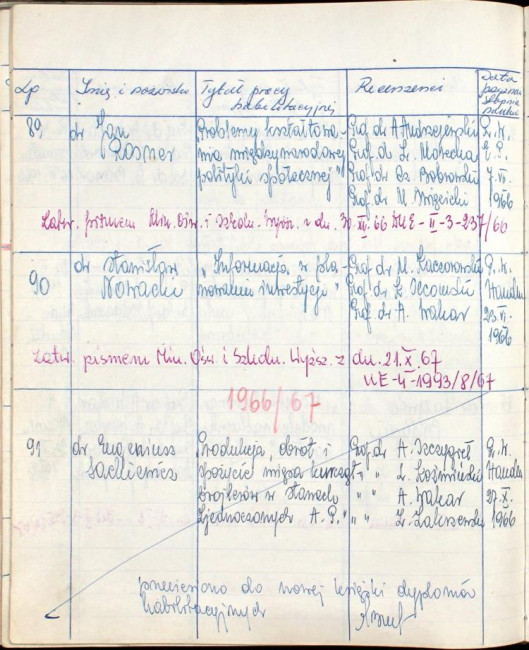 Lp Imię i nazwisko Tytuł pracy habilitacyjnej Recenzenci Data
89 dr Jan Rosner
Problemy kształtowa-
nia międzynarodowej
polityki społecznej"
Prof. dr A. Andrzejewski
Prof. dr
Prof. dr Cz. Bobrowski
Prof. dr M.
1966
Zatw. pismem Min. Ośw. i Szkoln. Wyższ. z dn. XII. 66 II-3-237/66
90 dr Stanisław Nowacki
„Informacja w pla-
nowaniu inwestycji"
Prof. dr M. Kaczorowski
Prof. dr K. Secomski
Prof. dr A. Wakar
Handlu
1966
Zatw. pismem Min. Ośw. i Szkoln. Wyższ. z dn. 21.X. 67
1993/8/67
1966/67
91 dr Eugeniusz
Produkcja, obrót i
spożycie mięsa kurcząt
brojlerów w Stanach
Zjednoczonych A. P."
Prof. dr A. Szczygieł
" " L. Koźmiński
" " A. Wakar
" " Z. Zakrzewski
Handlu
27.X.
1966
przeniesiono do nowej książki dyplomów
habilitacyjnych